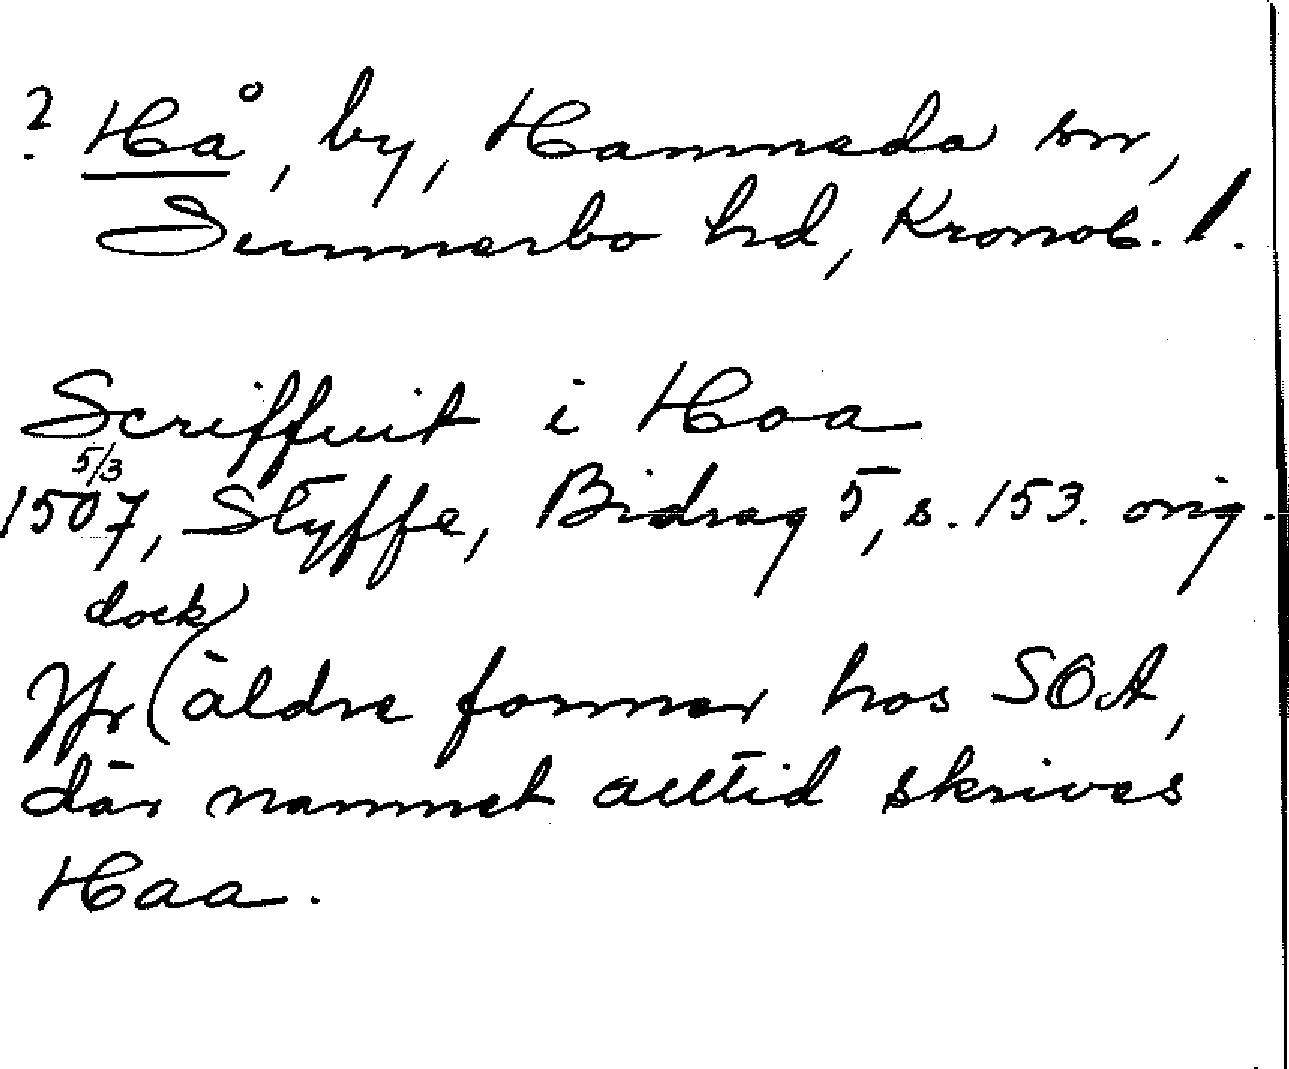 ? Hå, by, Hamneda sn,
Sunnerbo hd, Kronob. l.
Scriffuit i Hoa
5/3
1507, Styffe, Bidrag 5, s. 153. orig.
dock
Jfr (äldre former hos SOÄ,
där namnet alltid skrives
Haa.